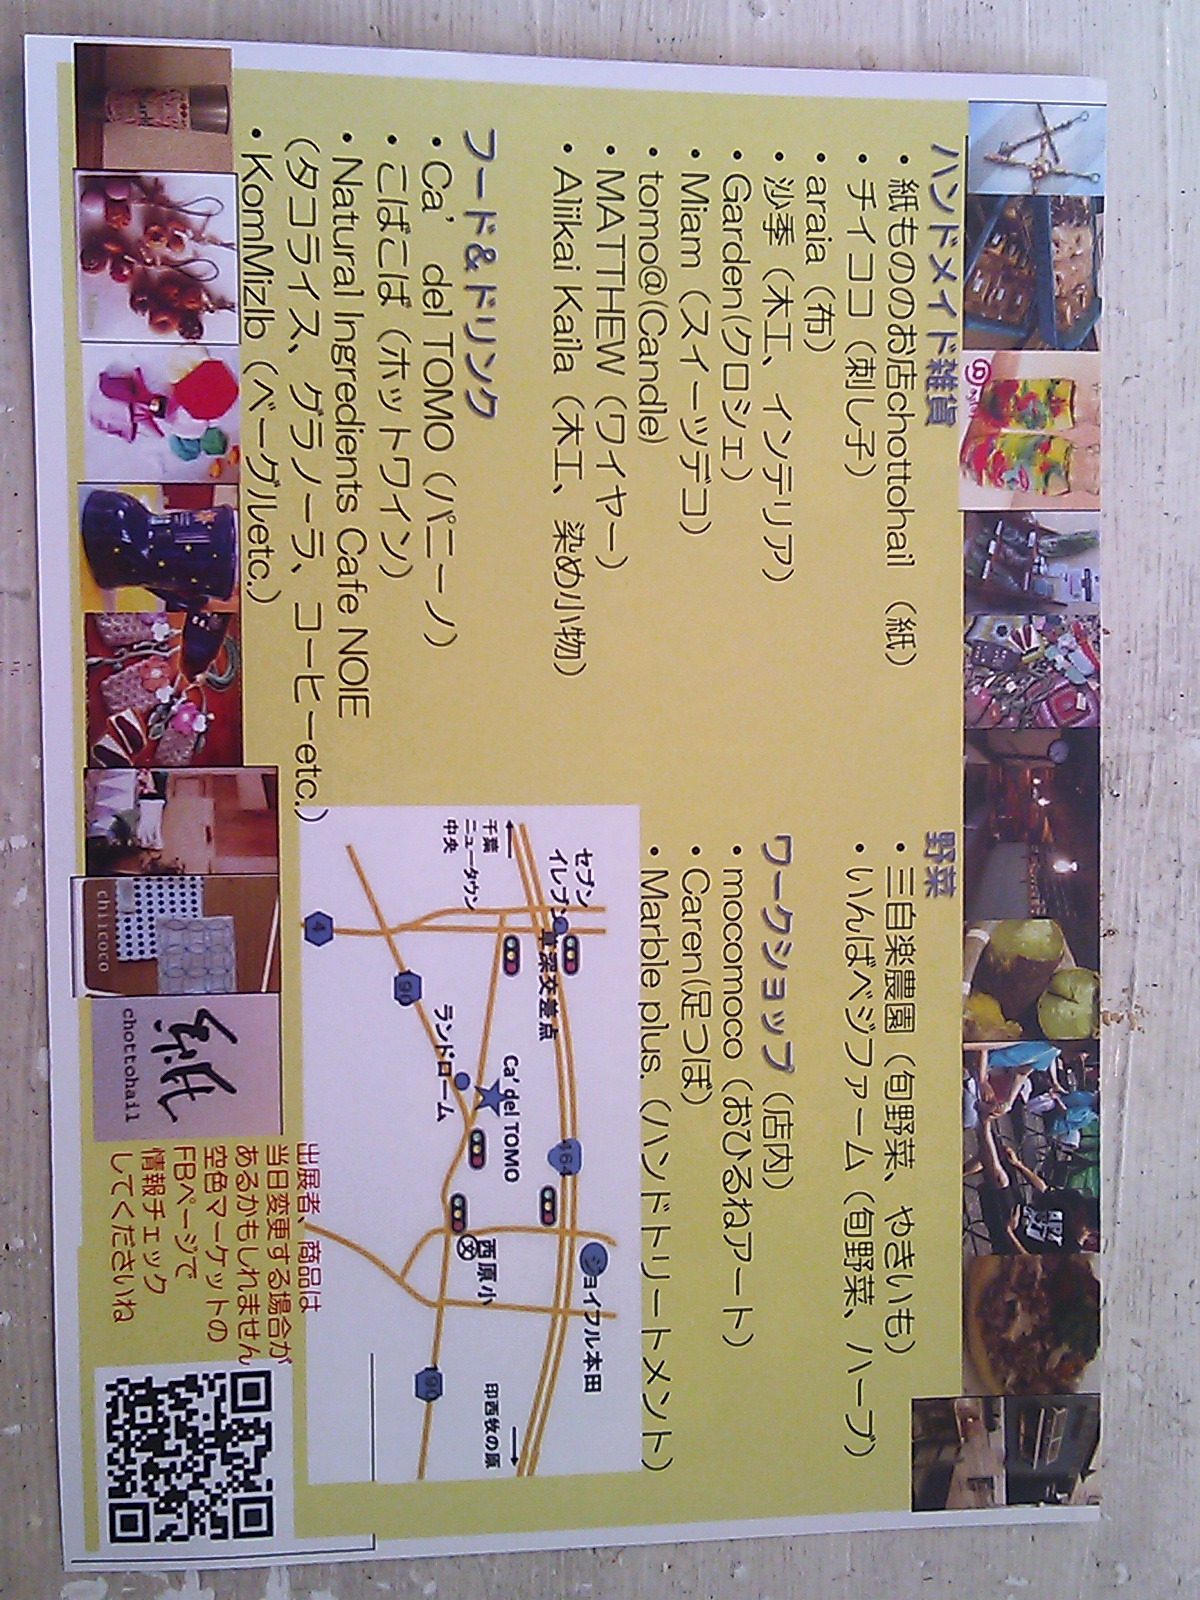 ハンドメイド雑貨
・紙もののお店chottohail （紙）
・チイココ（刺し子）
・araia（布）
・沙季（木工、インテリア）
・Garden(クロシェ）
・Miam（スイーツデコ）
・tomo@(Candle)
・MATTHEW（ワイヤー）
・Aliikai Kaila（木工、染め小物）
フード&ドリンク
・Ca' del TOMO（パニーノ）
・こばこば（ホットワイン）
・Natural Ingredients Cafe NOIE
（タコライス、グラノーラ、コーヒーetc.）
・KomMizlb（ベーグルetc.）
野菜
・三自楽農園（旬野菜、やきいも）
・いんばベジファーム（旬野菜、ハーブ）
ワークショップ（店内）
・mocomoco（おひるねアート）
・Caren(足つぼ)
・Marble plus.（ハンドトリートメント）
セブン
イレブン
千葉
ニュータウン
中央
草深交差点
ジョイフル本田
印西牧の原
464
Ca' del TOMO
西原小
文
ランドローム
4
190
190
出展者、商品は
当日変更する場合が
あるかもしれません
空色マーケットの
FBページで
情報チェック
してくださいね
chiicoco
紙
chottohail